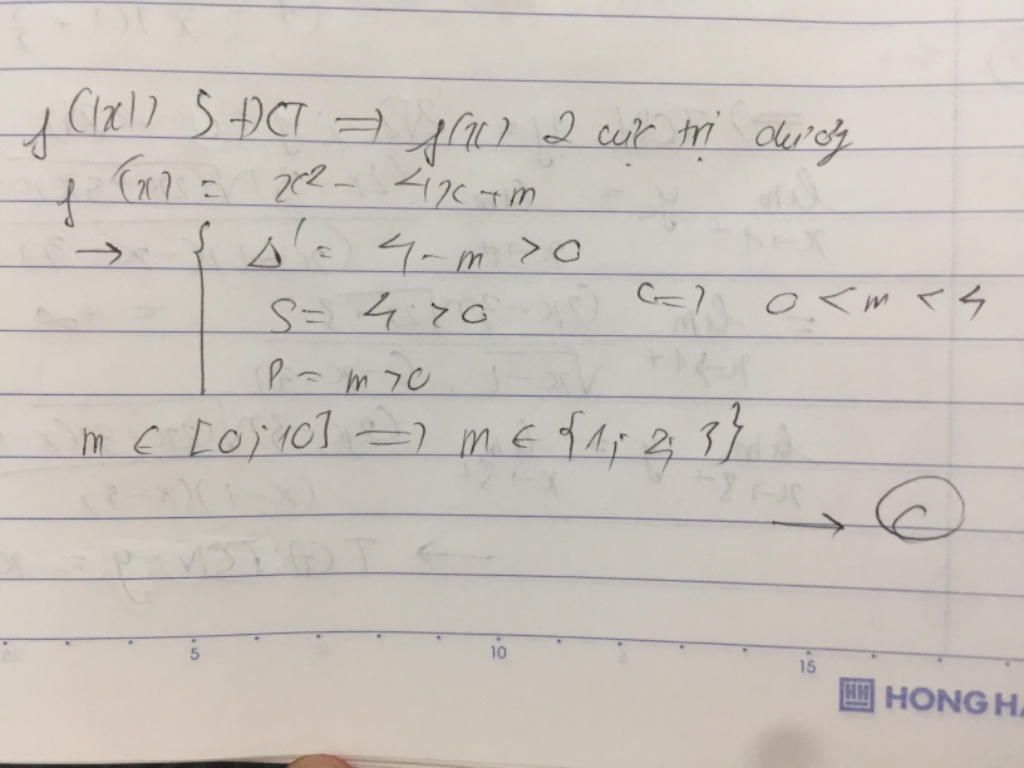 f(|x|) 5 ĐCT => f(x) 2 cực trị dương
f'(x) = x² - 4x + m
→ { Δ' = 4 - m > 0
S = 4 > 0 <=> 0 < m < 4
P = m > 0
m ∈ [0; 10] => m ∈ {1; 2; 3}
→ C
5 10 15
HONG HA